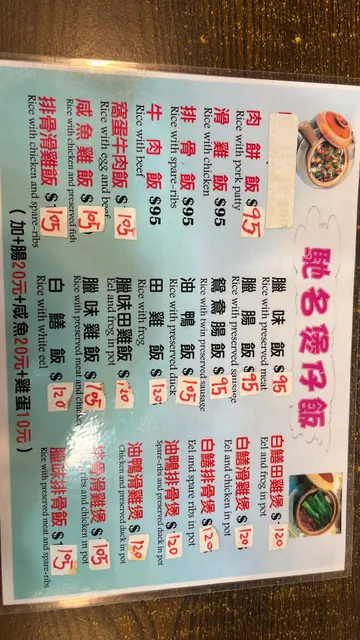 馳名煲仔飯
肉餅飯 $95
Rice with pork patty
滑雞飯 $95
Rice with chicken
排骨飯 $95
Rice with spare-ribs
牛肉飯 $95
Rice with beef
窩蛋牛肉飯 $105
Rice with egg and beef
咸魚雞飯 $105
Rice with chicken and preserved fish
排骨滑雞飯 $105
Rice with chicken and spare-ribs
臘味飯 $95
Rice with preserved meat
臘腸飯 $95
Rice with preserved sausage
鴛鴦腸飯 $95
Rice with twin preserved sausage
油鴨飯 $105
Rice with preserved duck
田雞飯 $120
Rice with frog
臘味田雞飯 $120
Eel and frog in pot
臘味雞飯 $105
Rice with preserved meat and chicken
白鱔飯 $120
Rice with white eel
白鱔田雞煲 $120
Eel and frog in pot
白鱔滑雞煲 $120
Eel and chicken in pot
白鱔排骨煲 $120
Eel and spare ribs in pot
油鴨排骨煲 $120
Spare-ribs and preserved duck in pot
油鴨滑雞煲 $120
Chicken and preserved duck in pot
排骨滑雞煲 $105
ribs and chicken in pot
臘味排骨飯 $105
Rice with preserved meat and spare-ribs
(加+腸20元+咸魚20元+雞蛋10元)